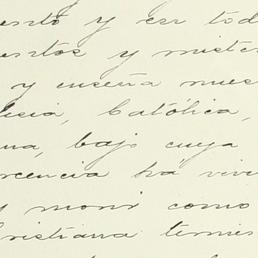 ento y en tod
entos y miste
y enseña nues
lesia, Católica,
ana, bajo cuya
creencia há vivi
y morir como
cristiana temer